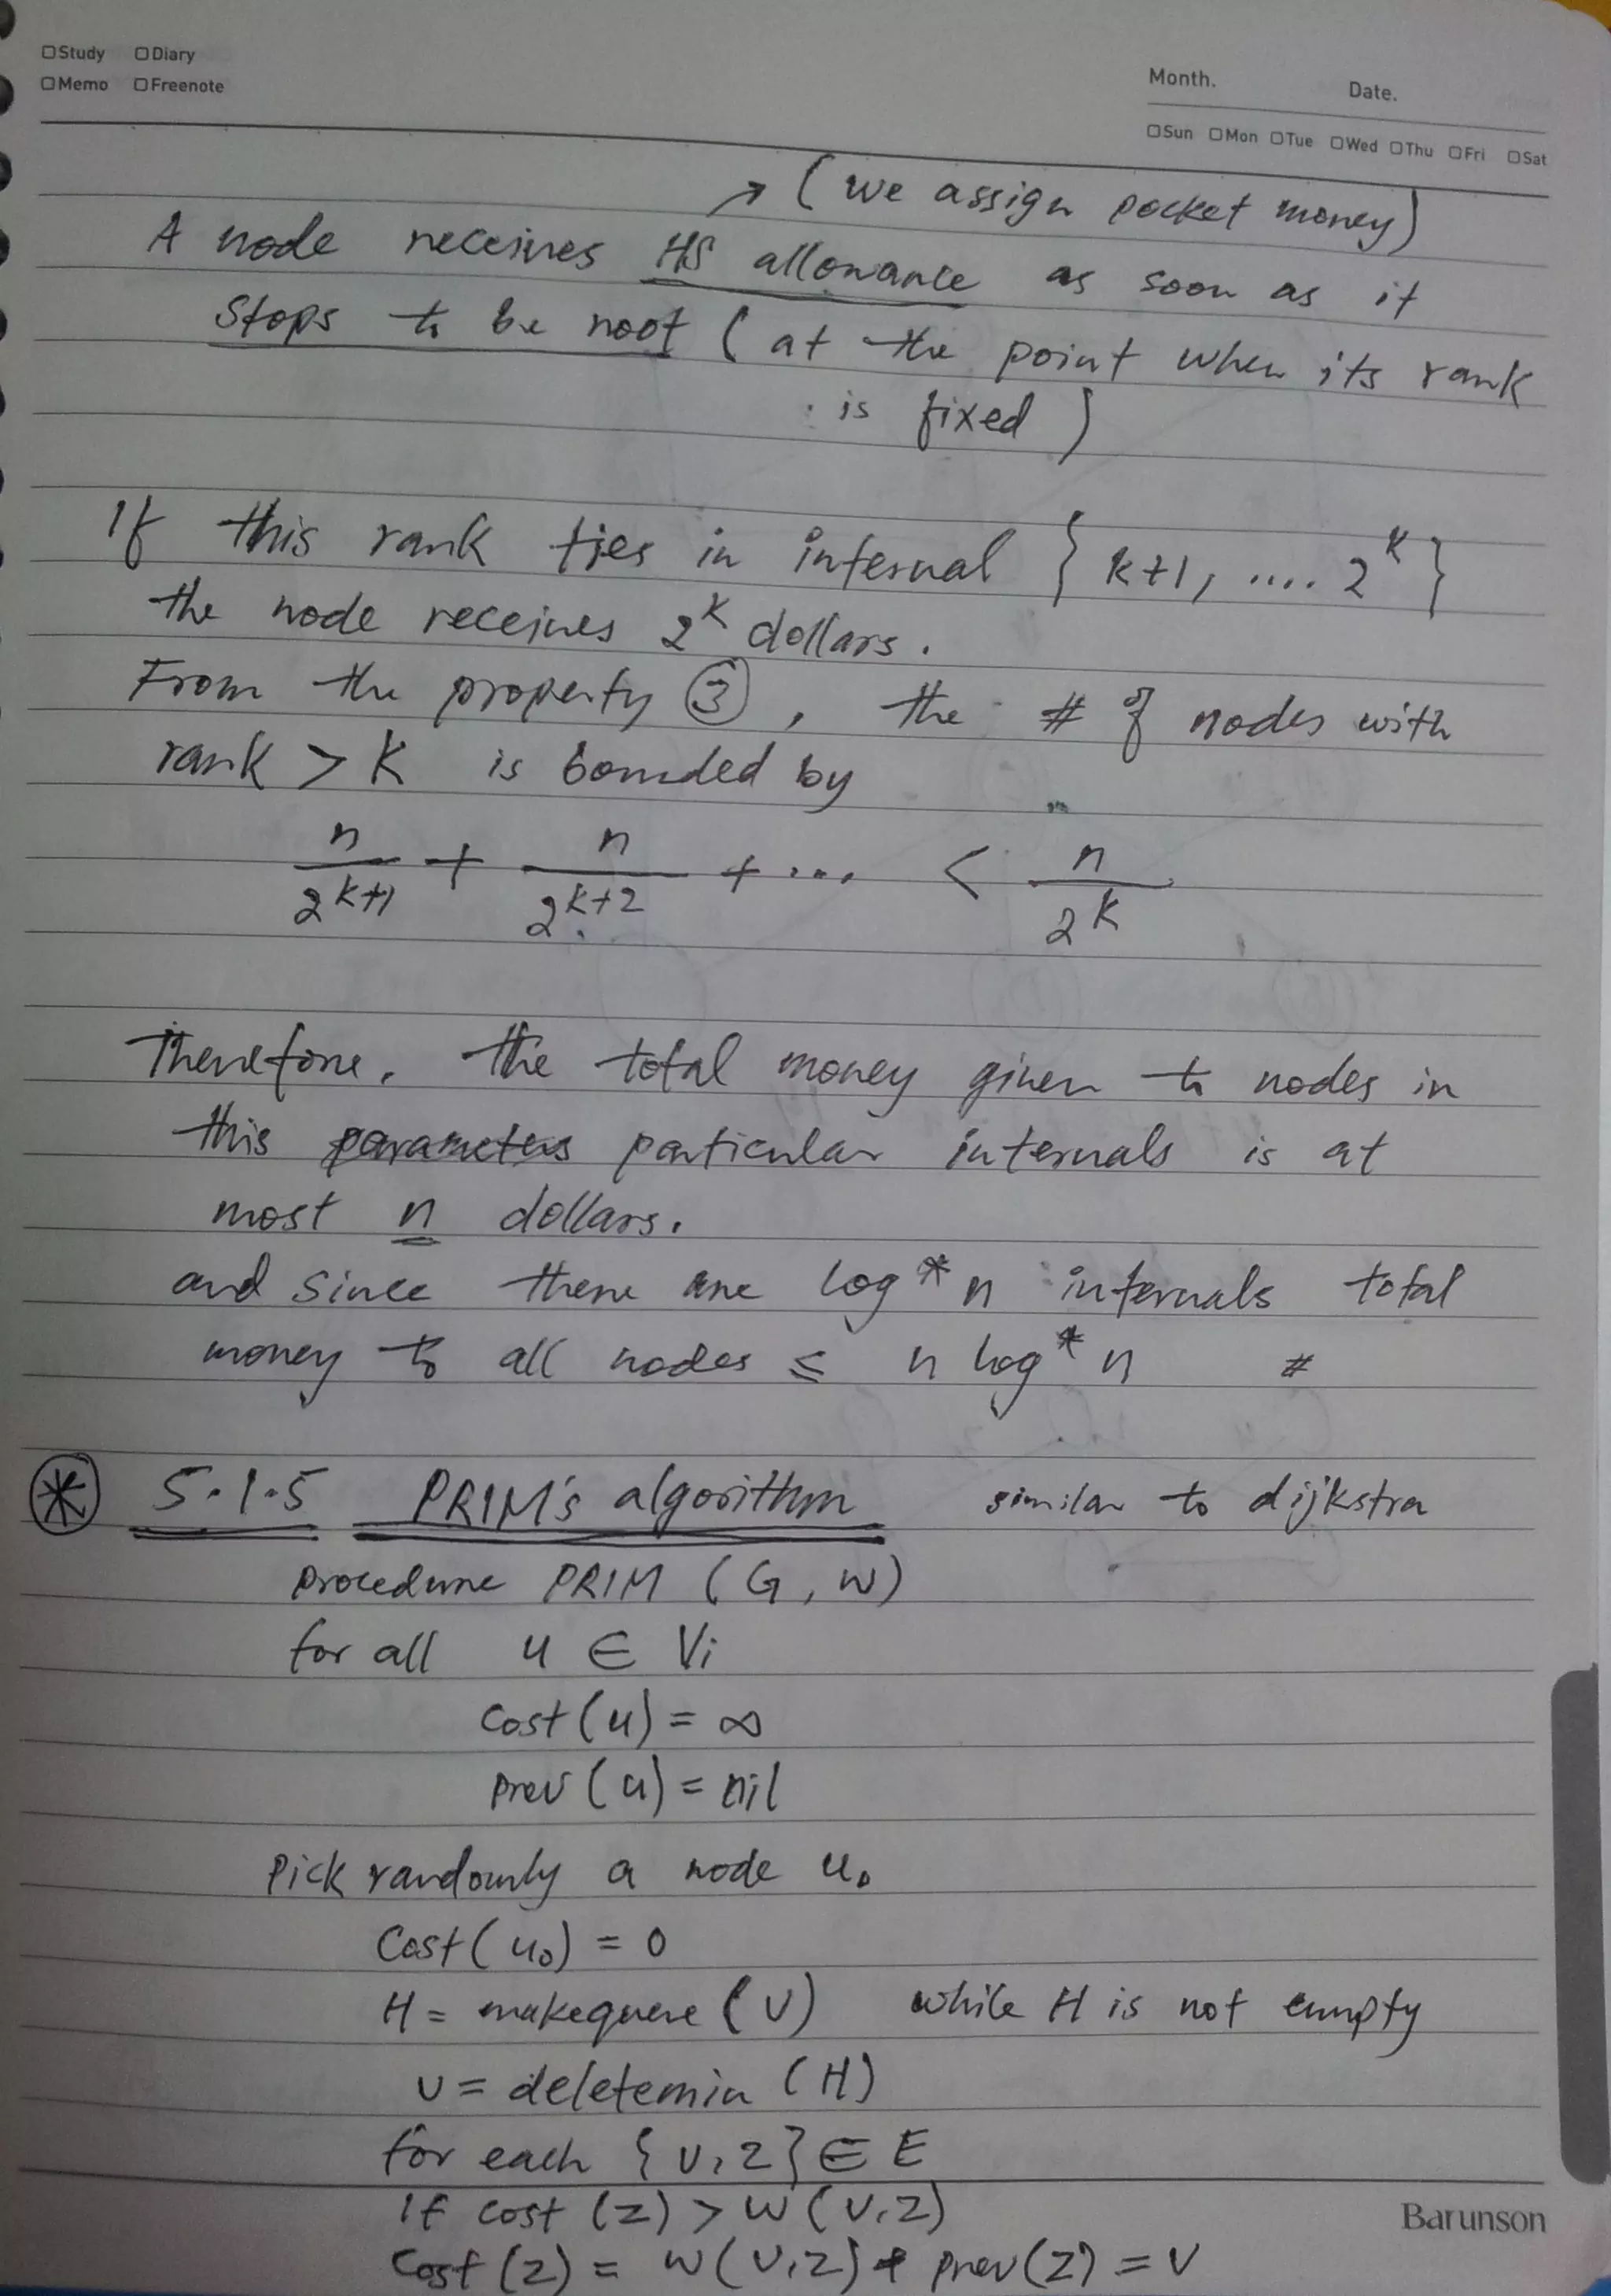 Study Diary
Memo Freenote
Month. Date.
Sun Mon Tue Wed Thu Fri Sat
→ (we assign pocket money)
A node receives its allowance as soon as it
stops to be root (at the point when its rank
is fixed)
If this rank ties in interval {k+1, .... 2^k}
the node receives 2^k dollars.
From the property ③, the # of nodes with
rank > k is bounded by
n/2^{k+1} + n/2^{k+2} + ... < n/2^k
Therefore, the total money given to nodes in
this particular intervals is at
most n dollars.
and since there are log* n intervals total
money to all nodes ≤ n log* n #
⊛ 5.1.5 PRIM's algorithm similar to dijkstra
procedure PRIM (G, w)
for all u ∈ V;
cost(u) = ∞
prev(u) = nil
Pick randomly a node u₀
Cost(u₀) = 0
H = makequeue (V) while H is not empty
v = deletemin (H)
for each {v, z} ∈ E
If cost (z) > w (v, z)
cost (z) = w (v, z) & prev(z) = v
Barunson